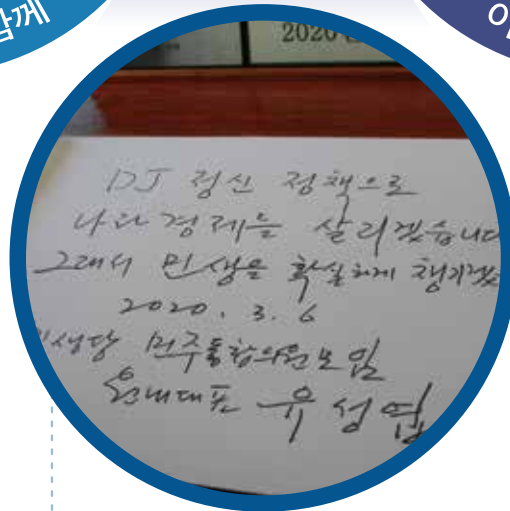 함께
2020
DJ 정신 정책으로
나라 경제를 살리겠습니다
그래서 민생을 확실하게 챙기겠
2020. 3. 6
민생당 민주통합의원모임
원내대표 유성엽